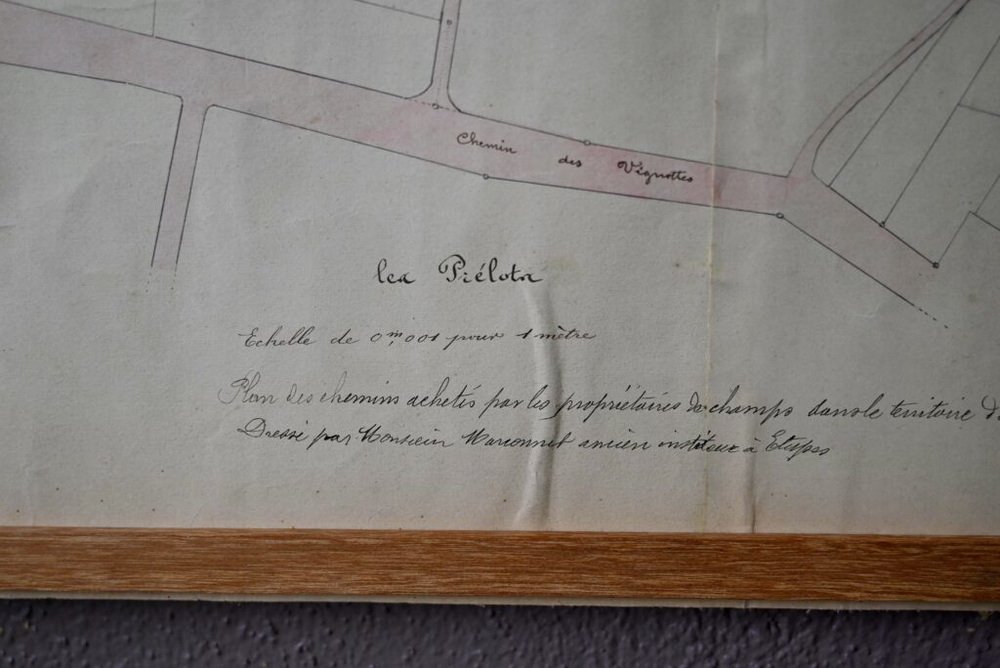 Chemin des Vignottes
les Piélots
Echelle de 0m,001 pour 1 mètre
Plan des chemins achetés par les propriétaires de champs dans le territoire d
Dressé par Monsieur Marconnet ancien instituteur à Etupes